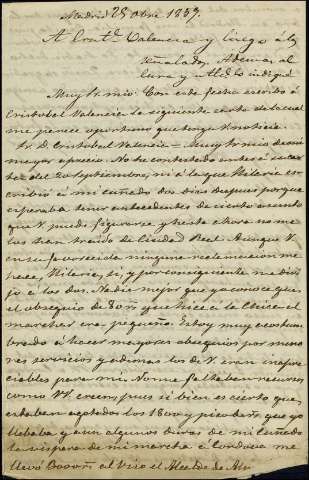 Madrid 25 Obre 1857.
A Crist.l Valencia y luego á los
señalados. Ademas, al
Cura y Alcde
Muy Sr. mio: Con esta fecha escribo á
Cristobal Valencia la siguiente carta de la cual
me parece oportuno que tenga V. noticia.
Sr. D. Cristobal Valencia = Muy Sr mio de mi
mayor aprecio. No he contestado antes á su car-
ta del 20 Septiembre, ni á la que Hilario es-
cribió á mi cuñado dos dias despues porque
esperaba tener antecedentes de cierto asunto
que V. puede figurarse y hasta ahora no me
los han traido de Ciudad Real. Aunque V.
en su favorecida ninguna reclamacion me
hace, Hilario, si, y por consiguiente me diri-
jo á los dos. Nadie mejor que yo conoce que
el obsequio de que hice á la Chica al
marchar era pequeño. Estoy muy acostum-
brado á hacer mayores obsequios por meno-
res servicios y ademas los de V. eran inapre-
ciables para mi. No me faltaban recursos
como VV. creen, pues si bien es cierto que
estaban agotados los 1800 y pico que yo
llebaba y aun algunos duros de mi cuñado
la vispera de mi marcha á Cordova me
llevó al Viso el Alcalde de